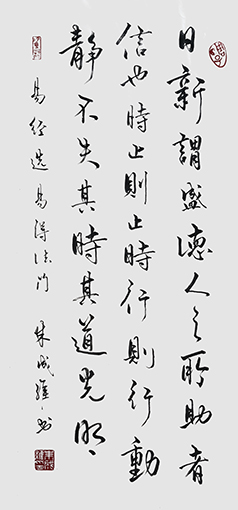 日新謂盛德人之所助者
信也時止則止時行則行動
靜不失其時其道光明
易经選易得法门 朱成 书